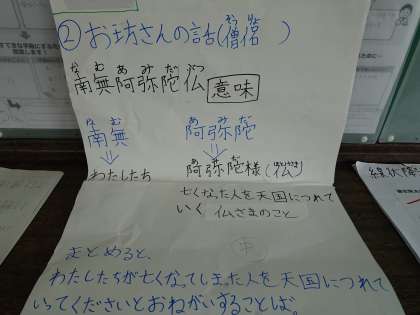 ②お坊さんの話(僧侶)
南無阿弥陀仏 意味
南無 阿弥陀
わたしたち 阿弥陀様(仏)
亡くなった人を天国につれて
いく 仏さまのこと
まとめると、
わたしたちが亡くなってしまった人を天国につれて
いってくださいとおねがいすることば。